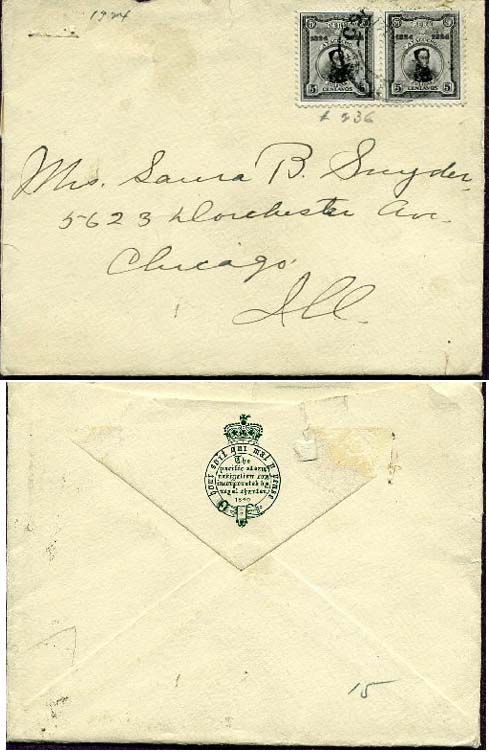 1924
5 5 5 5
1824 1824 1824 1824
5 CENTAVOS 5 5 CENTAVOS 5
236
Mrs. Laura B. Snyder
5623 Dorchester Ave.
Chicago
Ill.
honi soit qui mal y pense
The
pacific steam
navigation co.
incorporated by
royal charter
1840
15